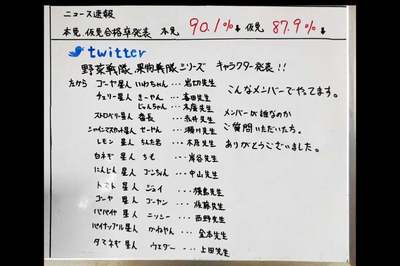 ニュース速報
本免、仮免合格率発表 本免 90.1%↓ 仮免 87.9%↓
twitter
野菜戦隊、果物戦隊シリーズ キャラクター発表!!
左から ゴーヤ星人 いわちゃん・・・岩切先生
チェリー星人 きーやん
じょんちゃん
ストロベリー星人 番長 ・・・永井先生
シャインマスカット星人 せーやん
レモン 星人
白ネギ 星人
にんじん 星人 ゴンちゃん・・・中山先生
トマト 星人 ジョイ
ゴーヤ 星人 ゴーヤン ・・・後藤先生
パパイヤ 星人 ニッシー ・・・西野先生
パイナップル星人 かねやん ・・・金本先生
タマネギ 星人 ウエダー ・・・上田先生
こんなメンバーでやってます。
メンバーが誰なのか
ご質問いただいた方。
ありがとうございました。